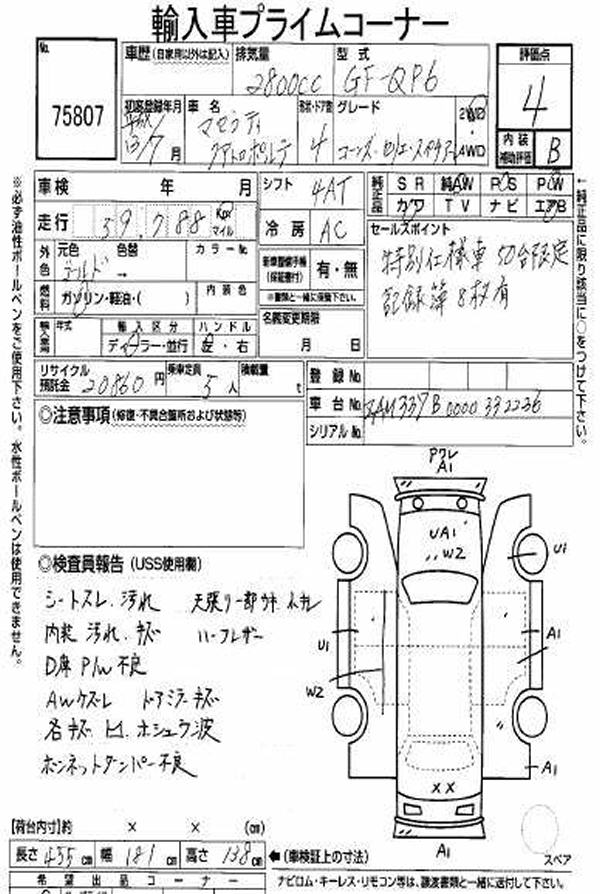 輸入車プライムコーナー
No.
75807
車歴(自家用以外は記入)
排気量
2800cc
型式
GF-QP6
評価点
4
内装
補助評価
B
初度登録年月
平成
13/7月
車名
マセラティ
クアトロポルテ
形状・ドア数
4
グレード
コーンズ・セリエ・スペチアーレ
2WD
4WD
車検 年 月
シフト
4AT
純正品
SR 純AW PS PW
カワ TV ナビ エアB
走行
39,788
Km
マイル
冷房
AC
セールスポイント
特別仕様車 50台限定
記録簿 8枚有
外色
元色
色替
カラーNo.
ゴールド→
新車整備手帳
(保証書付)
有・無
※書類と一緒に保管下さい。
燃料
ガソリン・軽油・( )
内装色
名義変更期限
月 日
輸入車
年式
輸入区分
ハンドル
ディーラー・並行
左・右
リサイクル
預託金
20860円
乗車定員
5人
積載量
t
登録No.
車台No.
ZAM337B0000332236
シリアルNo.
◎注意事項(修復・不具合箇所および状態等)
◎検査員報告(USS使用欄)
シートスレ、汚れ 天張り一部ウキ
内装 汚れ、キズ ハーフレザー
D席 P/W 不良
AWケズレ ドアミラーキズ
各キズ 凹、ホシュウ波
ボンネットダンパー不良
Pクレ
A1
UA1
W2
U1
U1
A1
W2
A1
XX
A1
スペア
【荷台内寸】約 × × (cm)
長さ 455cm 幅 181cm 高さ 138cm
←(車検証上の寸法)
希望出品コーナー
ナビロム・キーレス・リモコン等は、譲渡書類と一緒に送付して下さい。
※必ず油性ボールペンをご使用下さい。水性ボールペンは使用できません。
←純正品に限り該当に○をつけて下さい。